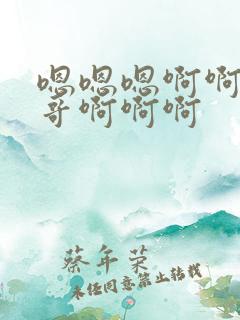 嗯嗯嗯啊啊
哥啊啊啊
蔡年荣
未经同意禁止转载